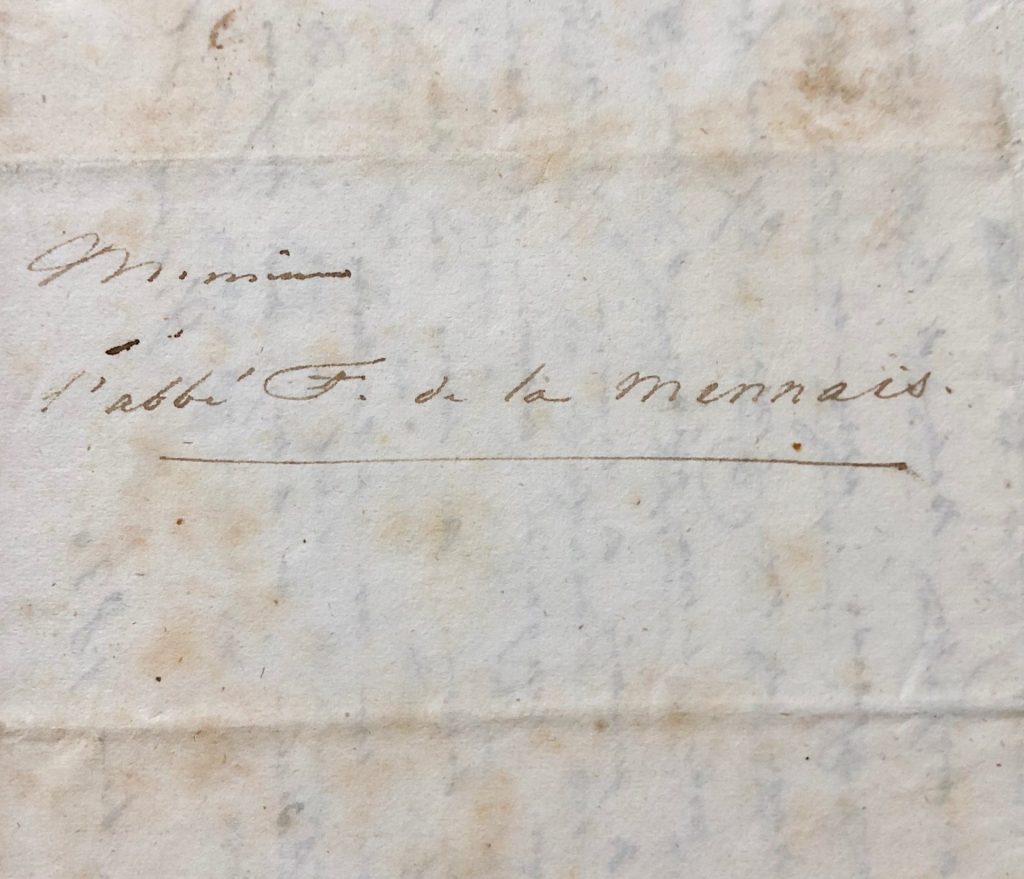 Monsieur
l'abbé F. de la mennais.